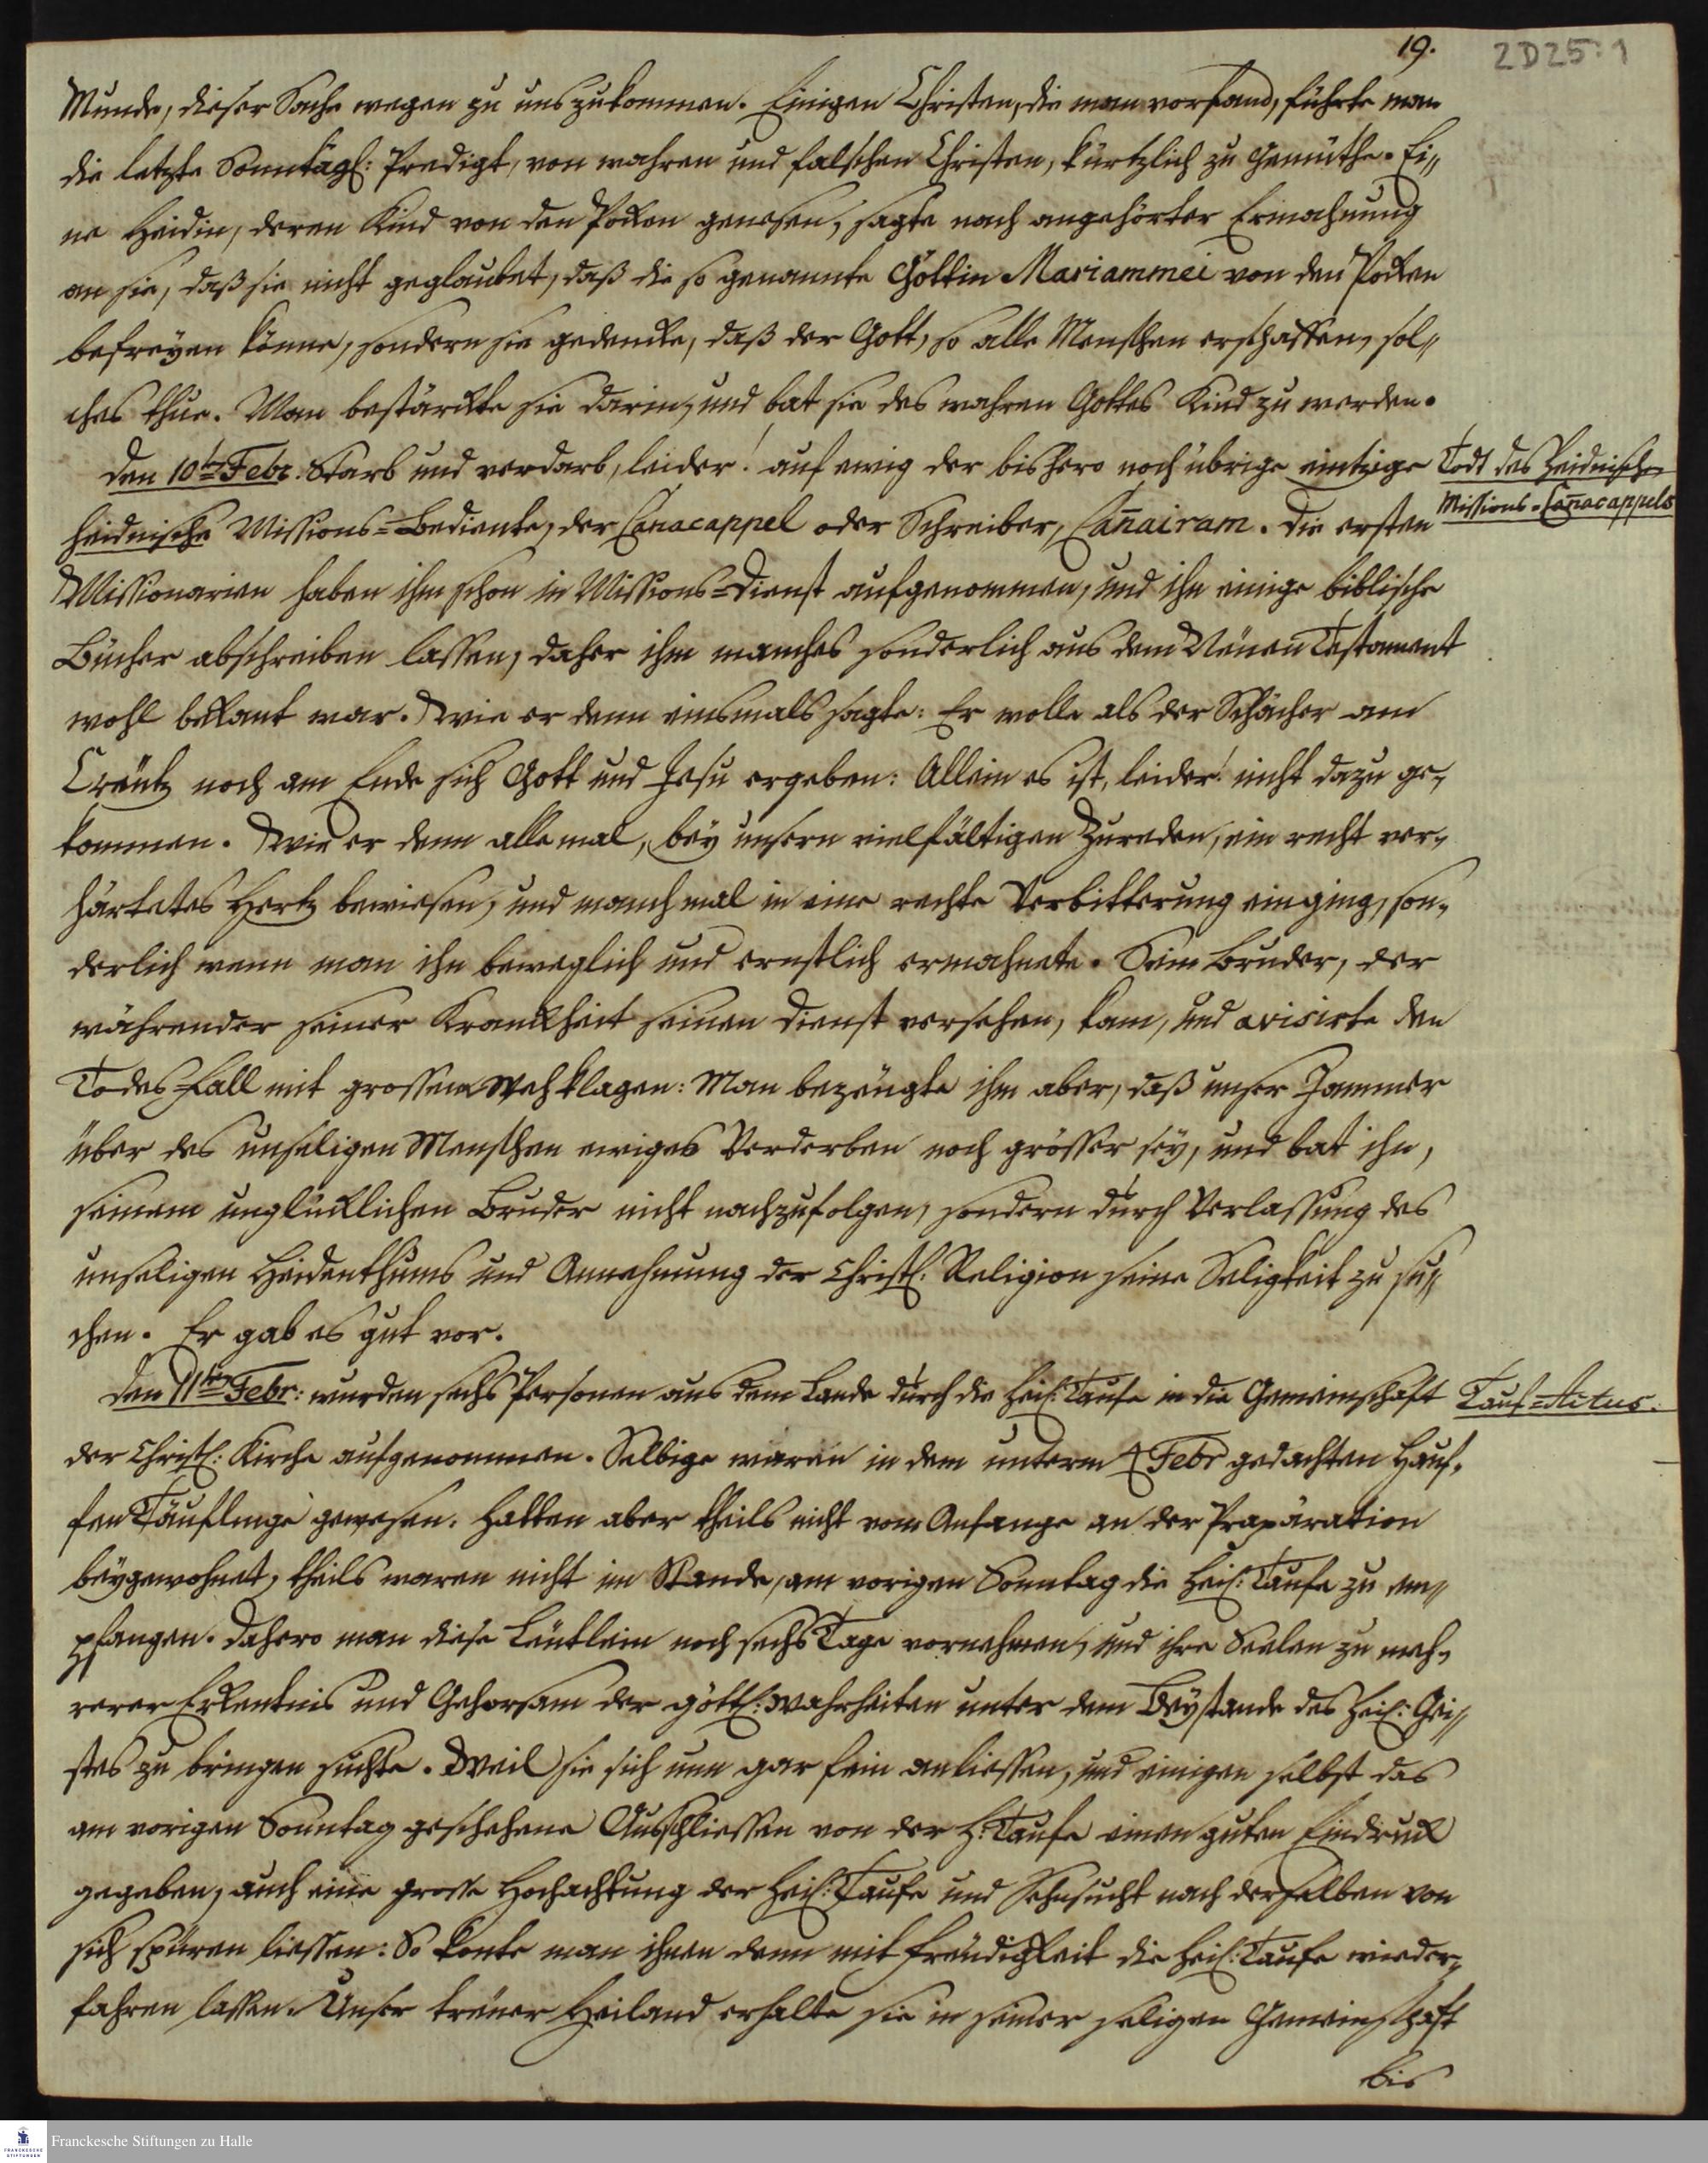 19.
2D25:1
Munde, dieser Sache wegen zu uns zukommen. Einigen Christen, die man vorfand, führte man
die letzte Sonntägl: Predigt, von wahren und falschen Christen, kürtzlich zu Gemüthe. Ei„
ne Heidin, deren Kind von den Pocken genesen, sagte nach angehörter Ermahnung
an sie, daß sie nicht geglaubet, daß die so genannte Göttin Mariammei von den Pocken
befreyen könne, sondern sie gedencke, daß der Gott, so alle Menschen erschaffen, sol„
ches thue. Man bestärckte sie darin, und bat sie des wahren Gottes Kind zu werden.
Den 10ten Febr. Starb und verdarb, leider! auf ewig der bishero noch übrige eintzige
Todt des Heidnischen
Missions-Cañacappels
heidnische Missions-Bediente, der Canacappel oder Schreiber, Cañairam. Die ersten
Missionarien haben ihn schon in Missions-Dienst aufgenommen, und ihn einige biblische
Bücher abschreiben lassen, daher ihm manches sonderlich aus dem Neuen Testament
wohl bekant war. Wie er denn einsmals sagte: Er wolle als der Schächer am
Creutz noch am Ende sich Gott und Jesu ergeben: Allein es ist, leider! nicht dazu ge„
kommen. Wie er denn allemal, bey unsern vielfältigen Zureden, ein recht ver„
härtetes Hertz bewiesen, und manchmal in eine rechte Verbitterung einging, son„
derlich wenn man ihn beweglich und ernstlich ermahnete. Sein Bruder, der
währender seiner Kranckheit seinen Dienst versehen, kam, und avisirte den
Todes-Fall mit grossem Wehklagen: Man bezeugte ihm aber, daß unser Jammer
über des unseligen Menschen ewiges Verderben noch grösser sey, und bat ihn,
seinem unglücklichen Bruder nicht nachzufolgen, sondern durch Verlassung des
unseligen Heidenthums und Annehmung der Christl. Religion seine Seligkeit zu su„
chen. Er gab es gut vor.
Den 11ten Febr: wurden sechs Personen aus dem Lande durch die Heil: Taufe in die Gemeinschaft
Tauf-Actus.
der Christl: Kirche aufgenommen. Selbige waren in dem unterm 4 Febr gedachten Hauf„
fen Täuflinge gewesen. Hatten aber theils nicht vom Anfange an der Præparation
beygewohnet, theils waren nicht im Stande, am vorigen Sonntag die Heil: Taufe zu em„
pfangen. Dahero man diese Leutlein noch sechs Tage vornehmen, und ihre Seelen zu meh„
rerer Erkentnis und Gehorsam der göttl: Wahrheiten unter dem Beystande des Heil: Gei„
stes zu bringen suchte. Weil sie sich nun gar fein anliessen, und einigen selbst das
am vorigen Sonntag geschehene Ausschliessen von der H: Taufe einen guten Eindruck
gegeben, auch eine grosse Hochachtung der Heil: Taufe und Sehnsucht nach derselben von
sich spüren liessen: So konte man ihnen denn mit Freudigkeit die Heil: Taufe wieder„
fahren lassen. Unser treuer Heiland erhalte sie in seiner seligen Gemeinschaft
bis
FRANCKESCHE STIFTUNGEN
Franckesche Stiftungen zu Halle